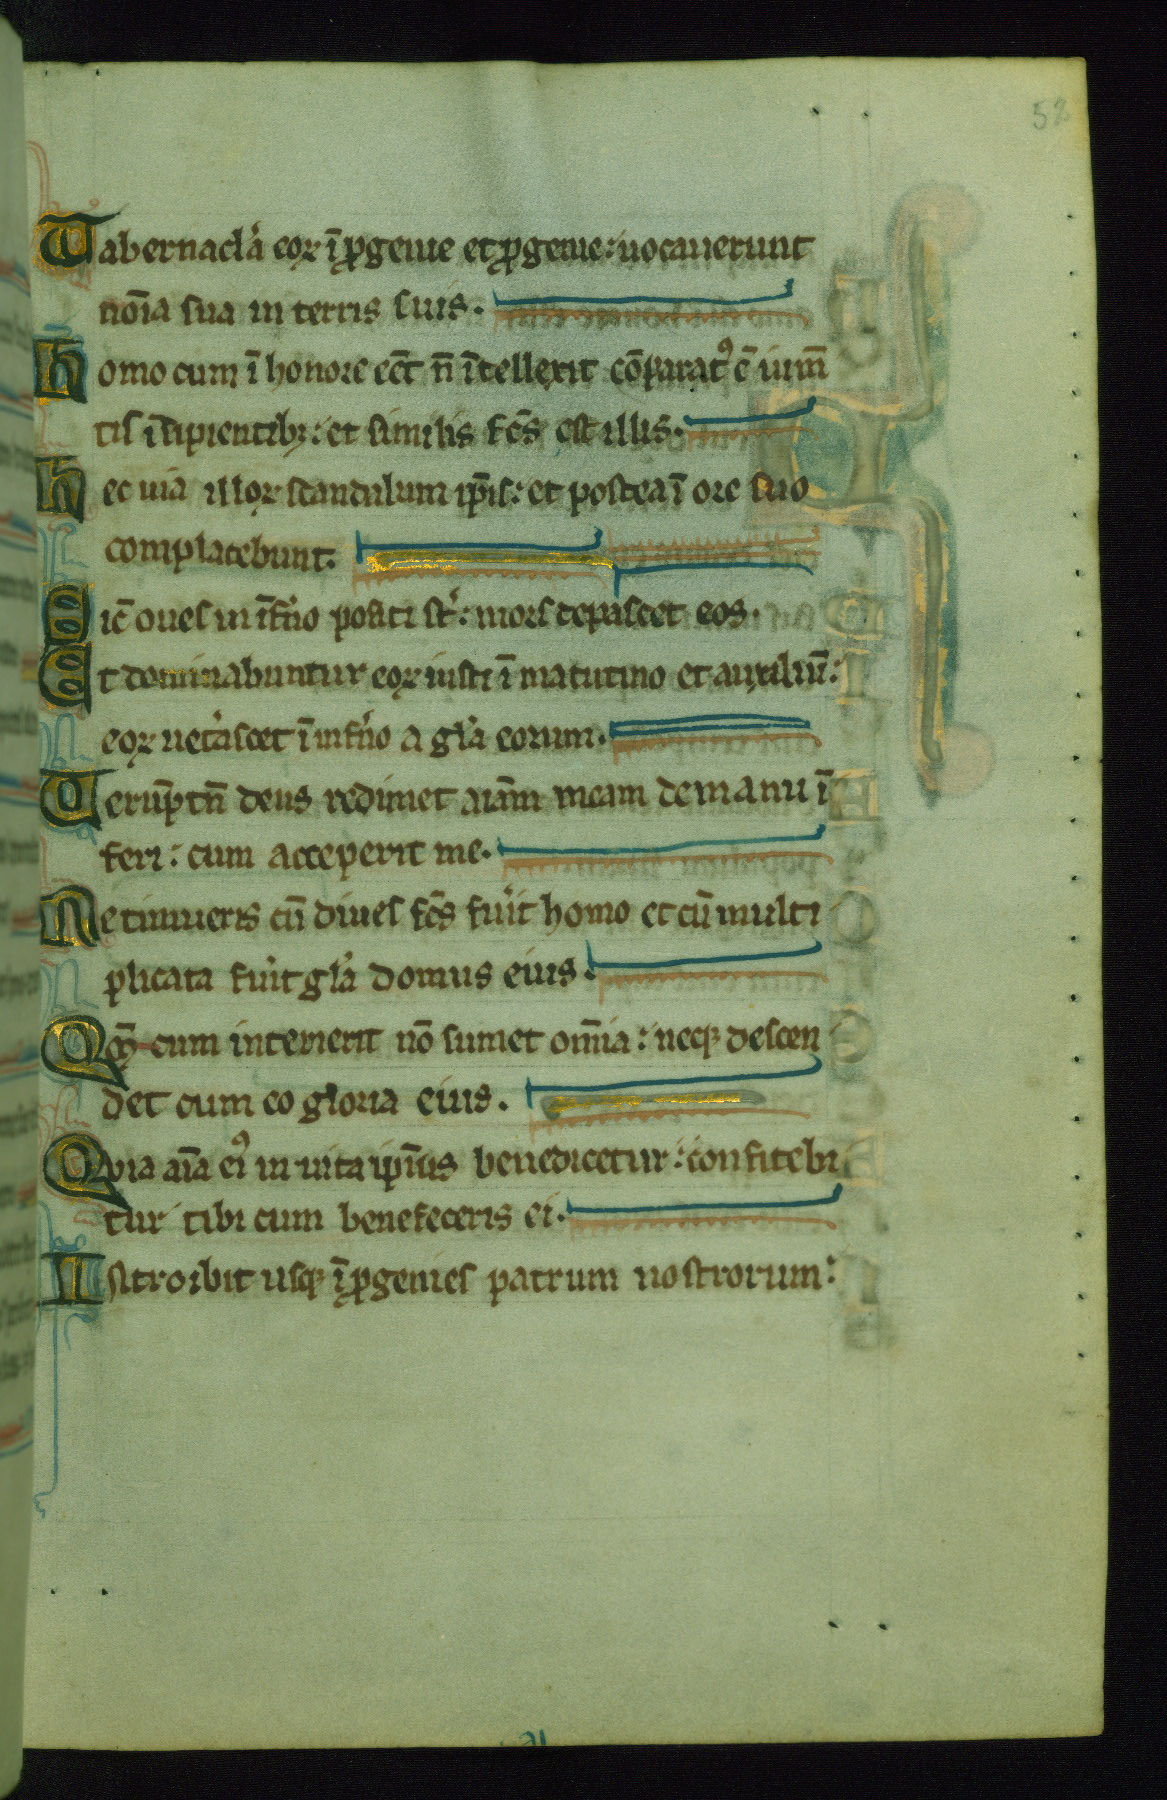 58
Tabernacl̓a eoꝝ ī ꝓgenie et ꝓgenie: uocauerunt
nōia sua in terris suis.
Homo cum ī honore eēt n̄ ītellexit cōparatꝰ ē ium̄
tis īsipientibꝫ: et similis fc̄s est illis.
Hec uia illoꝝ scandalum ip̄is: et postea ī ore suo
complacebunt.
Sic̄ oues in īfn̓o positi st̄: mors depascet eos.
Et dominabuntur eoꝝ iusti ī matutino et auxiliū:
eoꝝ uet̓ascet ī infn̓o a gl̓a eorum.
Uerūptn̄ deus redimet aīam meam de manu ī
feri: cum acceperit me.
Ne timueris cū diues fc̄s fu̓it homo et cū multi
plicata fu̓it gl̓a domus eius.
Qm̄ cum interierit nō sumet omīa: neqꝫ descen
det cum eo gloria eius.
Quia aīa eiꝰ in uita ip̄ius benedicetur: confitebi
tur tibi cum benefeceris ei.
Introibit usqꝫ ī ꝓgenies patrum nostrorum: